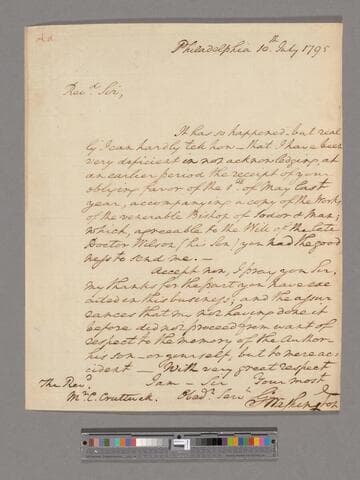 Philadelphia 10.th July 1795
Rev.d Sir,
It has so happened, but real
ly I can hardly tell how — that I have been
very deficient in not acknowledging, at
an earlier period the receipt of your
obliging favor of the 1st of May last
year, accompanying a copy of the Works
of the venerable Bishop of Sodor & Man;
which, agreeable to the Will of the late
Doctor Wilson (his Son) you had the good
ness to send me. —
Accept now, I pray you Sir,
my thanks for the part you have exe
cuted in this business; and the assu
rances that my not having done it
before did not proceed from want of
respect to the memory of the Author —
his son — or yourself, but to mere ac
cident — With very great respect
I am — Sir Your most
Obed.t Serv.t
G Washington
The Rev.d
Mr. C. Cruttwell.